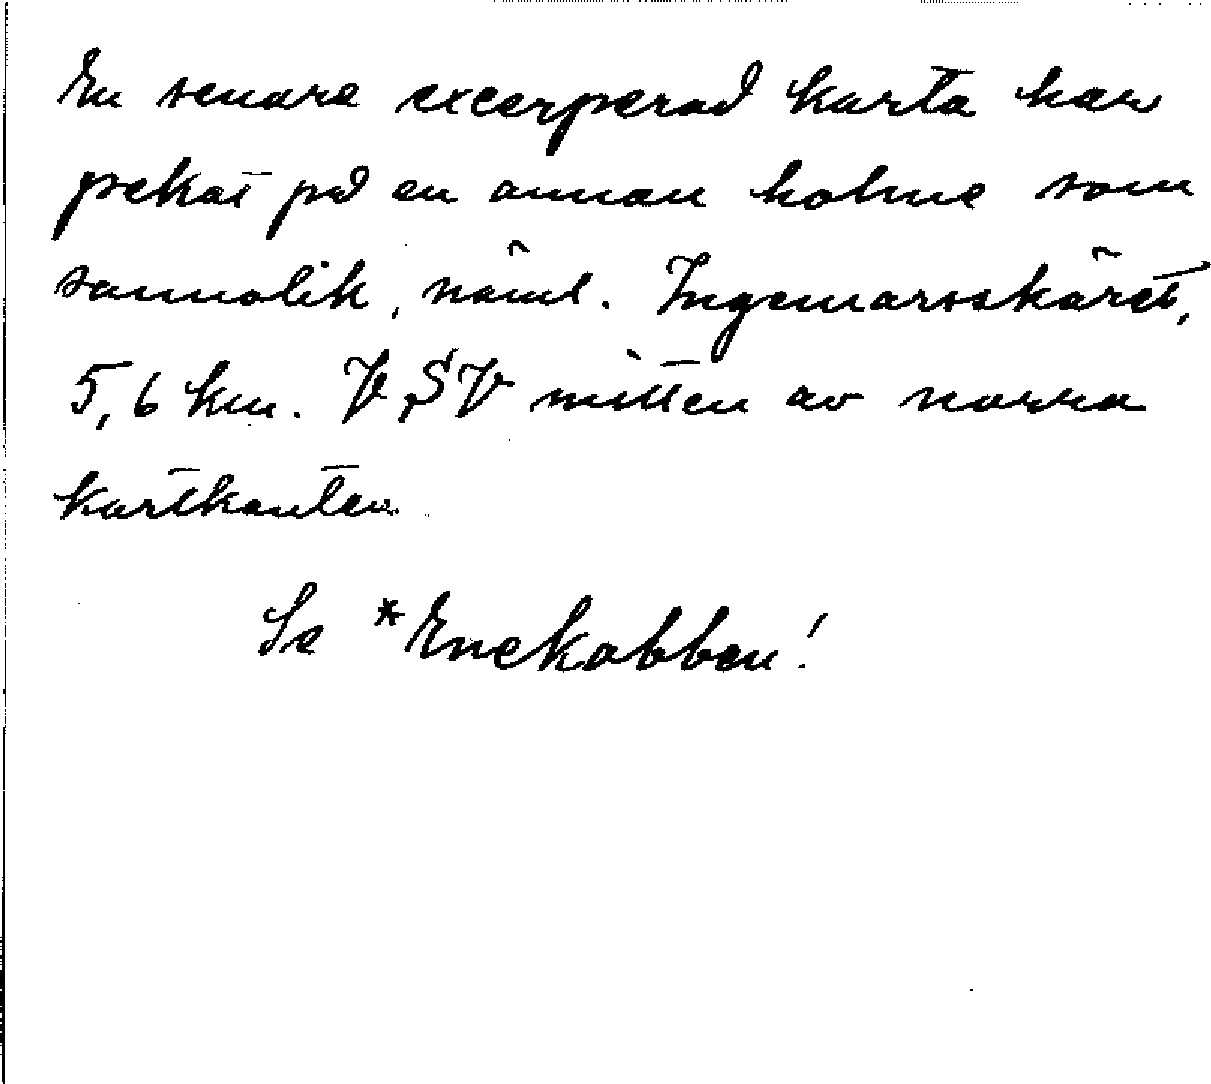 En senare excerperad karta har
pekat på en annan holme som
sannolik, näml. Ingemarsskäret,
5,6 km. V,SV mitten av norra
kartkanten.
Se *Enekobben!